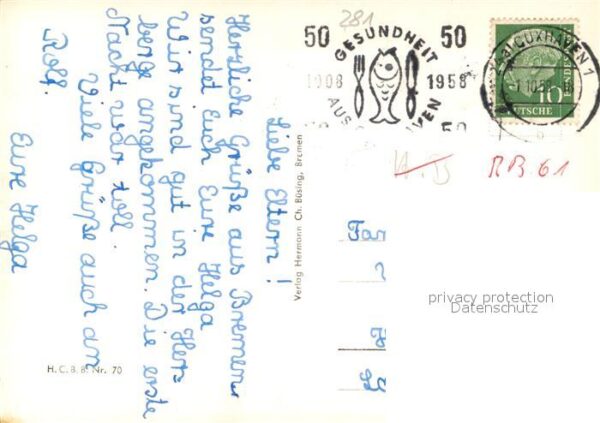 Liebe Eltern!
Herzliche Grüße aus Bremen
sendet Euch Eure Helga
Wir sind gut in der Herz
berge angekommen. Die erste
Nacht war toll.
Viele Grüße auch an
Rolf.
Eure Helga
H.C.B.B. Nr. 70
Verlag Hermann Ch. Büsing, Bremen
281
50 GESUNDHEIT 50
1908 1958
AUS
50
CUXHAVEN 1
10
RB.61
privacy protection
Datenschutz